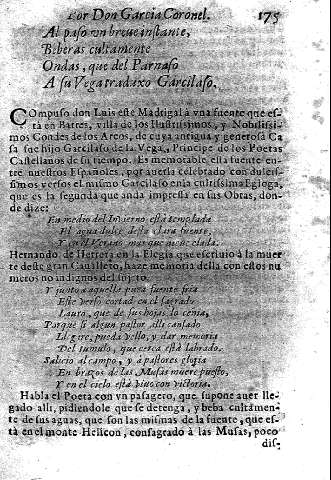 Por Don Garcia Coronel. 175
Al paso un breue instante,
Beberas cultamente
Ondas, que del Parnaso
A su Vega traduxo Garcilaso.
COmpuso don Luis este Madrigal à vna fuente que es-
tà en Batres, villa de los Ilustrissimos, y Nobilissi-
mos Condes de los Arcos, de cuya antigua y generosa Ca
sa fue hijo Garcilaso de la Vega, Principe de los Poetas
Castellanos de su tiempo. Es memorable esta fuente en-
tre nuestros Españoles, por auerla celebrado con dulcis-
simos versos el mismo Garcilaso en la cultissima Egloga,
que es la segunda que anda impressa en sus Obras, don-
de dize:
En medio del Inuierno està templada
El agua dulce desta clara fuente,
Y en el Verano mas que nieue elada.
Hernando de Herrera en la Elegia que escriuiò à la muer
te deste gran Cauallero, haze memoria della con estos nu
meros no indignos del sujeto.
Y junto a aquella pura fuente fria
Este verso cortad en el sagrado
Lauro, que de sus hojas lo ceñia,
Porque si algun pastor alli cansado
Llegare, pueda vello, y dar memoria
Del tumulo, que cerca està labrado.
Salicio al campo, y à pastores gloria
En braços de las Musas muere puesto,
Y en el cielo està viuo con victoria.
Habla el Poeta con vn pasagero, que supone auer lle-
gado alli, pidiendole que se detenga, y beba cultamen-
te de sus aguas, que son las mismas de la fuente, que es-
tà en el monte Helicon, consagrado à las Musas, poco
dis-